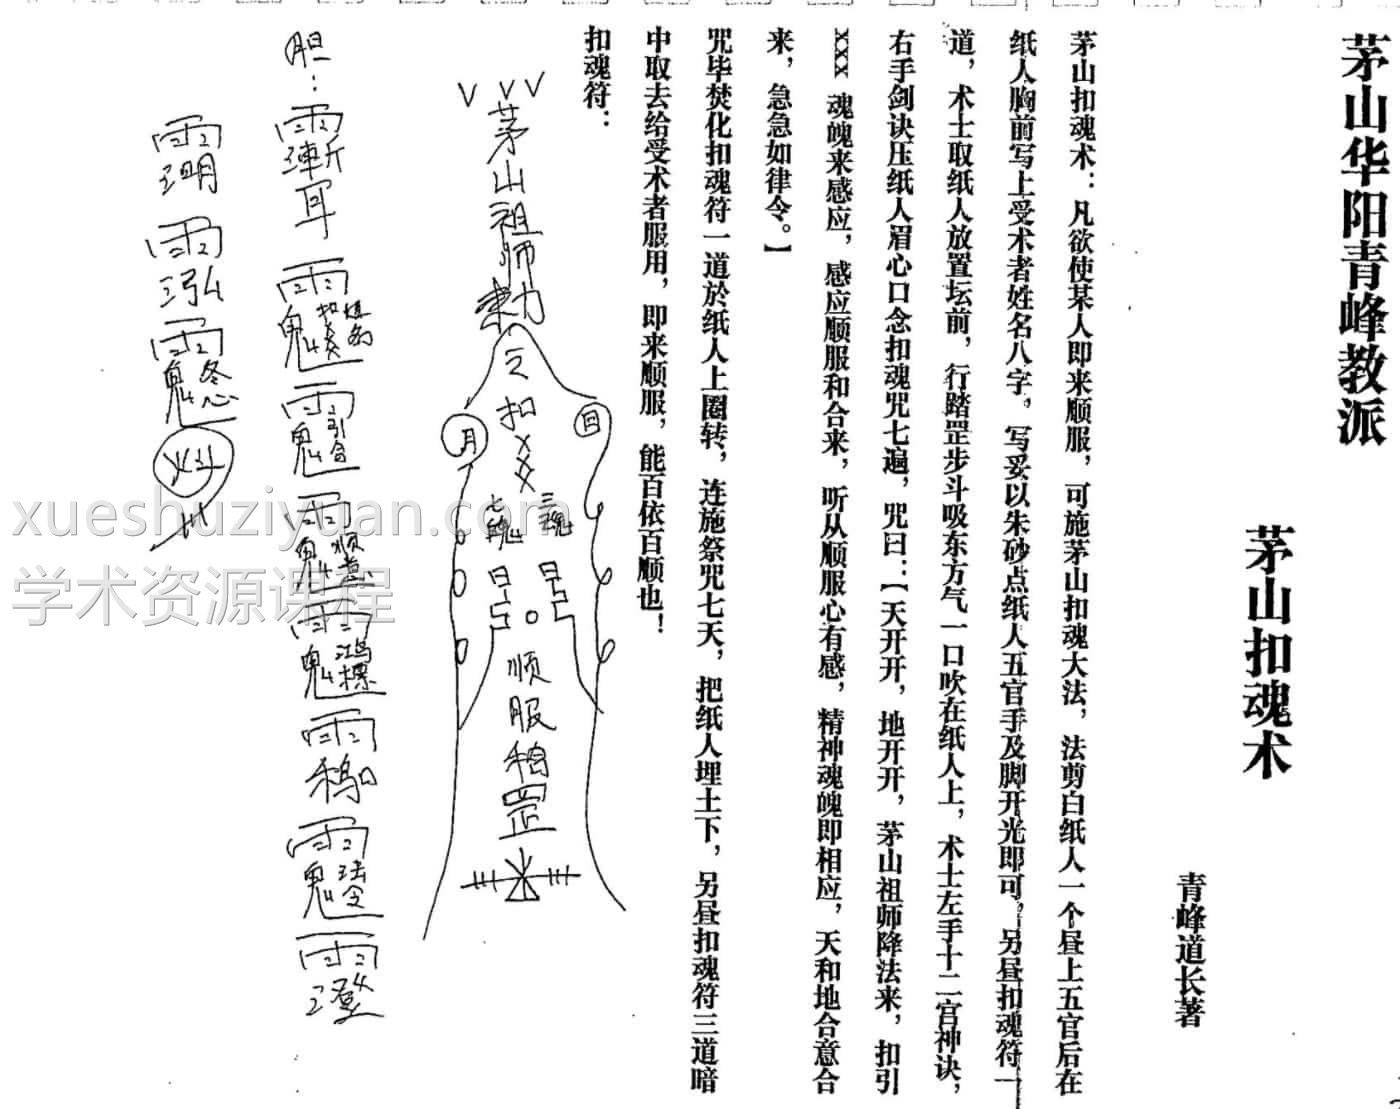 茅山华阳青峰教派
茅山扣魂术
青峰道长著
茅山扣魂术：凡欲使某人即来顺服，可施茅山扣魂大法，法剪白纸人一个昼上五官后在
纸人胸前写上受术者姓名八字。写妥以朱砂点纸人五官手及脚开光即可，另昼扣魂符一
道，术士取纸人放置坛前，行踏罡步斗吸东方气一口吹在纸人上，术士左手十二宫神诀，
右手剑诀压纸人眉心口念扣魂咒七遍，咒曰：【天开开，地开开，茅山祖师降法来，扣引
××× 魂魄来感应，感应顺服和合来，听从顺服心有感，精神魂魄即相应，天和地合意合
来，急急如律令。】
咒毕焚化扣魂符一道於纸人上圈转，连施祭咒七天，把纸人埋土下，另昼扣魂符三道暗
中取去给受术者服用，即来顺服，能百依百顺也！
扣魂符：
茅山祖师勅
令扣×××
日
月
三魂
七魄
顺服
罡
胆：
xueshuziyuan.com
学术资源课程